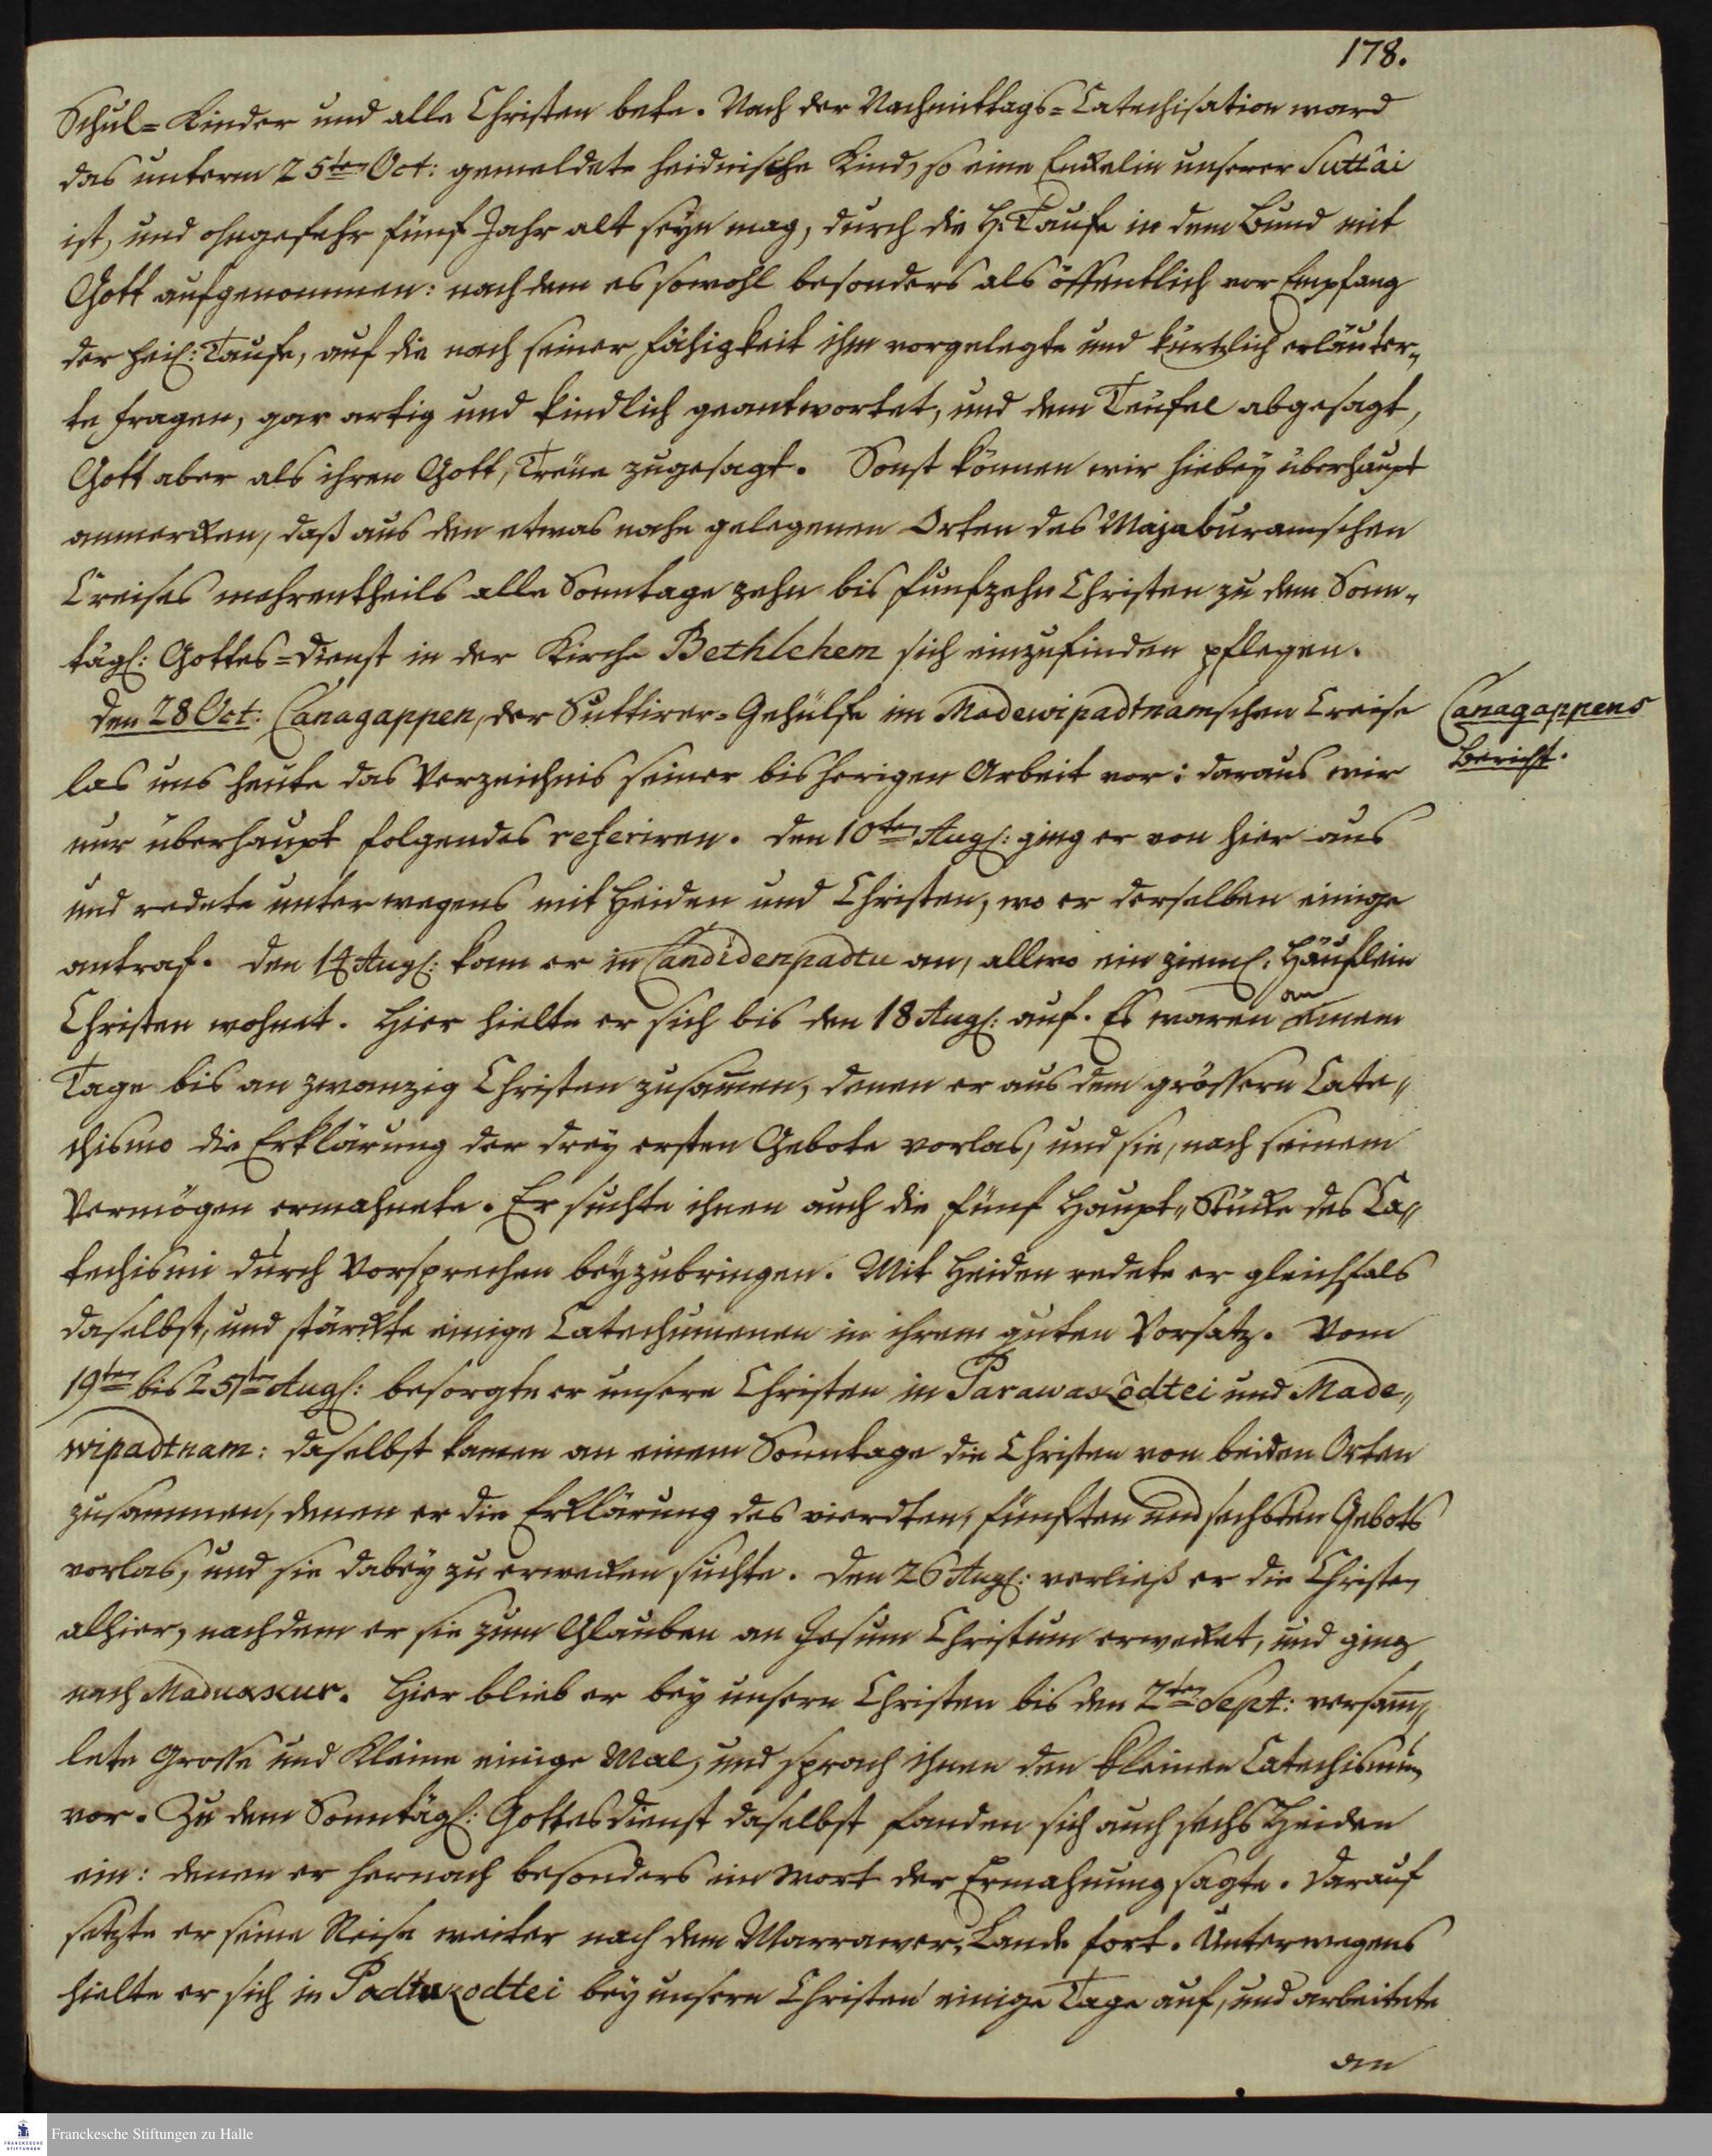 178.
Schul=Kinder und alle Christen bete. Nach der Nachmittags=Catechisation ward
das unterm 25ten Oct: gemeldete heidnische Kind, so eine Enkelin unserer Suttâi
ist, und ohngefehr fünf Jahr alt seyn mag, durch die H. Taufe in dem Bund mit
Gott aufgenommen: nachdem es sowohl besonders als öffentlich vor Empfang
der heil: Taufe, auf die nach seiner Fähigkeit ihm vorgelegte und kürtzlich erläuter„
te Fragen, gar artig und kindlich geantwortet, und dem Teufel abgesagt,
Gott aber als ihren Gott, Treue zugesagt. Sonst können wir hiebey überhaupt
anmercken, daß aus den etwas nahe gelegenen Orten des Majaburamschen
Creises mehrentheils alle Sonntage zehn bis funfzehn Christen zu dem Sonn„
tägl: Gottes=dienst in der Kirche Bethlehem sich einzufinden pflegen.
den 28 Oct. Canagappen, der Suttirer=Gehülfe im Madewipadtnamschen Creise
Canagappens
Bericht.
las uns heute das Verzeichnis seiner bisherigen Arbeit vor: daraus wir
nur überhaupt folgendes referiren. Den 10ten Augs: ging er von hier aus
und redete unterwegens mit Heiden und Christen, wo er derselben einige
antraf. Den 14 Augs: kam er in Candidenpadtu an, allwo ein zieml: Häuflein
Christen wohnet. Hier hielte er sich bis den 18 Augs: auf. Es waren an einem
Tage bis an zwanzig Christen zusam̄en, denen er aus dem grössern Cate„
chismo die Erklärung der drey ersten Gebote vorlas, und sie, nach seinem
Vermögen ermahnete. Er suchte ihnen auch die fünf Haupt„Stücke des Ca„
techismi durch Vorsprechen beyzubringen. Mit Heiden redete er gleichfals
daselbst, und stärckte einige Catechumenen in ihrem guten Vorsatz. Vom
19ten bis 25ten Augs: besorgte er unsere Christen in Parawaskôdtei und Made„
wipadtnam: daselbst kamen an einem Sonntage die Christen von beiden Orten
zusammen, denen er die Erklärung des vierdten, fünften und sechsten Gebots
vorlas, und sie dabey zu erwecken suchte. Den 26 Augs: verließ er die Christen
alhier, nachdem er sie zum Glauben an Jesum Christum erwecket, und ging
nach Maduxkur. Hier blieb er bey unsern Christen bis den 2ten Sept: versam̄„
lete Grosse und Kleine einige Mal, und sprach ihnen den kleinen Catechismum
vor. Zu dem Sonntägl: Gottesdienst daselbst fanden sich auch sechs Heiden
ein: denen er hernach besonders ein Wort der Ermahnung sagte. Darauf
setzte er seine Reise weiter nach dem Marrawer„Lande fort. Unterwegens
hielte er sich in Padtukodtei bey unsern Christen einige Tage auf, und arbeitete
an
FRANCKESCHE STIFTUNGEN
Franckesche Stiftungen zu Halle